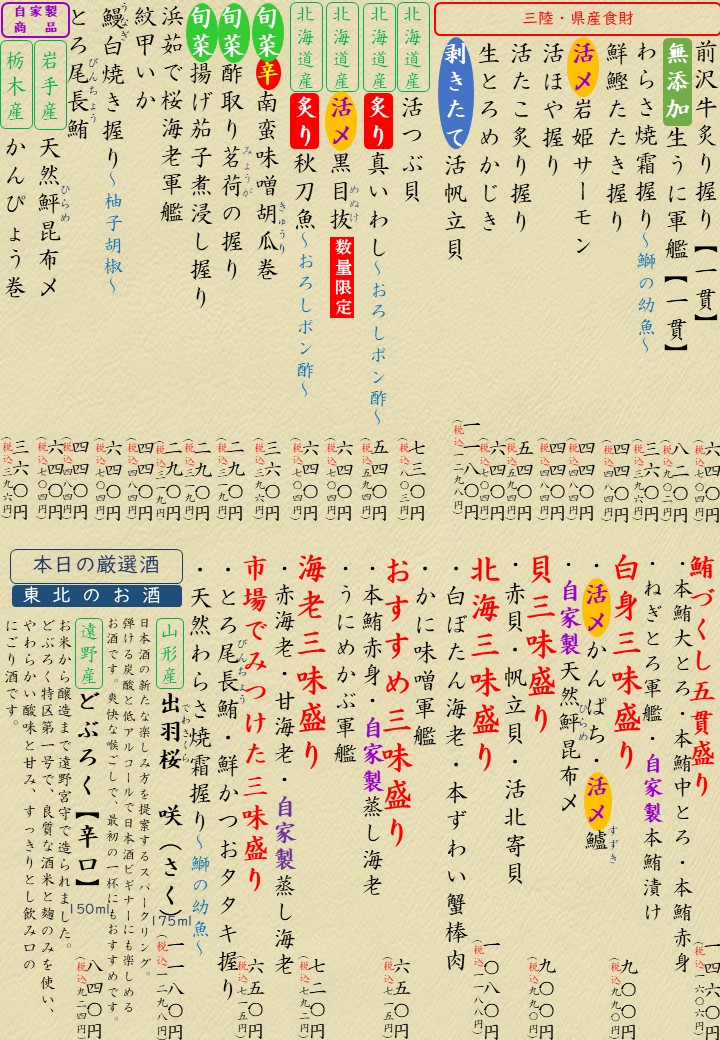 三陸・県産食財
前沢牛炙り握り【一貫】 六四〇円 (税込七〇四円)
無添加 生うに軍艦【一貫】 八二〇円 (税込九〇二円)
わらさ焼霜握り〜鰤の幼魚〜 三六〇円 (税込三九六円)
鮮鰹たたき握り 四四〇円 (税込四八四円)
活〆 岩姫サーモン 四四〇円 (税込四八四円)
活ほや握り 四四〇円 (税込四八四円)
活たこ炙り握り 五四〇円 (税込五九四円)
生とろめかじき 六四〇円 (税込七〇四円)
剥きたて 活帆立貝 一一八〇円 (税込一二九八円)
北海道産 活つぶ貝 七三〇円 (税込八〇三円)
北海道産 炙り 真いわし〜おろしポン酢〜 五四〇円 (税込五九四円)
北海道産 活〆 黒目抜 めぬけ 数量限定 六四〇円 (税込七〇四円)
北海道産 炙り 秋刀魚〜おろしポン酢〜 六四〇円 (税込七〇四円)
旬菜 辛 南蛮味噌胡瓜巻 きゅうり 三六〇円 (税込三九六円)
旬菜 酢取り茗荷の握り みょうが 二九〇円 (税込三一九円)
旬菜 揚げ茄子煮浸し握り 二九〇円 (税込三一九円)
浜茹で桜海老軍艦 二九〇円 (税込三一九円)
紋甲いか 四四〇円 (税込四八四円)
鰻白焼き握り〜柚子胡椒〜 うなぎ 六四〇円 (税込七〇四円)
とろ尾長鮪 びんちょう 四四〇円 (税込四八四円)
自家製商品
岩手産 天然鮃昆布〆 ひらめ 六四〇円 (税込七〇四円)
栃木産 かんぴょう巻 三六〇円 (税込三九六円)
鮪づくし五貫盛り
・本鮪大とろ・本鮪中とろ・本鮪赤身 一四六〇円 (税込一六〇六円)
・ねぎとろ軍艦・自家製本鮪漬け
白身三味盛り
・活〆かんぱち・活〆鱸 すずき 九〇〇円 (税込九九〇円)
・自家製天然鮃昆布〆 ひらめ
貝三味盛り
・赤貝・帆立貝・活北寄貝 九〇〇円 (税込九九〇円)
北海三味盛り
・白ぼたん海老・本ずわい蟹棒肉 一〇八〇円 (税込一一八八円)
・かに味噌軍艦
おすすめ三味盛り
・本鮪赤身・自家製蒸し海老 六五〇円 (税込七一五円)
・うにめかぶ軍艦
海老三味盛り
・赤海老・甘海老・自家製蒸し海老 七二〇円 (税込七九二円)
市場でみつけた三味盛り
・とろ尾長鮪・鮮かつおタタキ握り びんちょう 六五〇円 (税込七一五円)
・天然わらさ焼霜握り〜鰤の幼魚〜
本日の厳選酒
東北のお酒
山形産 出羽桜 でわざくら 咲(さく) 175ml 一一八〇円 (税込一二九八円)
日本酒の新たな楽しみ方を提案するスパークリング。
弾ける炭酸と低アルコールで日本酒ビギナーにも楽しめる
お酒です。爽快な喉ごしで、最初の一杯にもおすすめです。
遠野産 どぶろく【辛口】 150ml 八四〇円 (税込九二四円)
お米から醸造まで遠野宮守で造られました。
どぶろく特区第一号で、良質な酒米と麹のみを使い、
やわらかい酸味と甘み、すっきりとし飲み口の
にごり酒です。